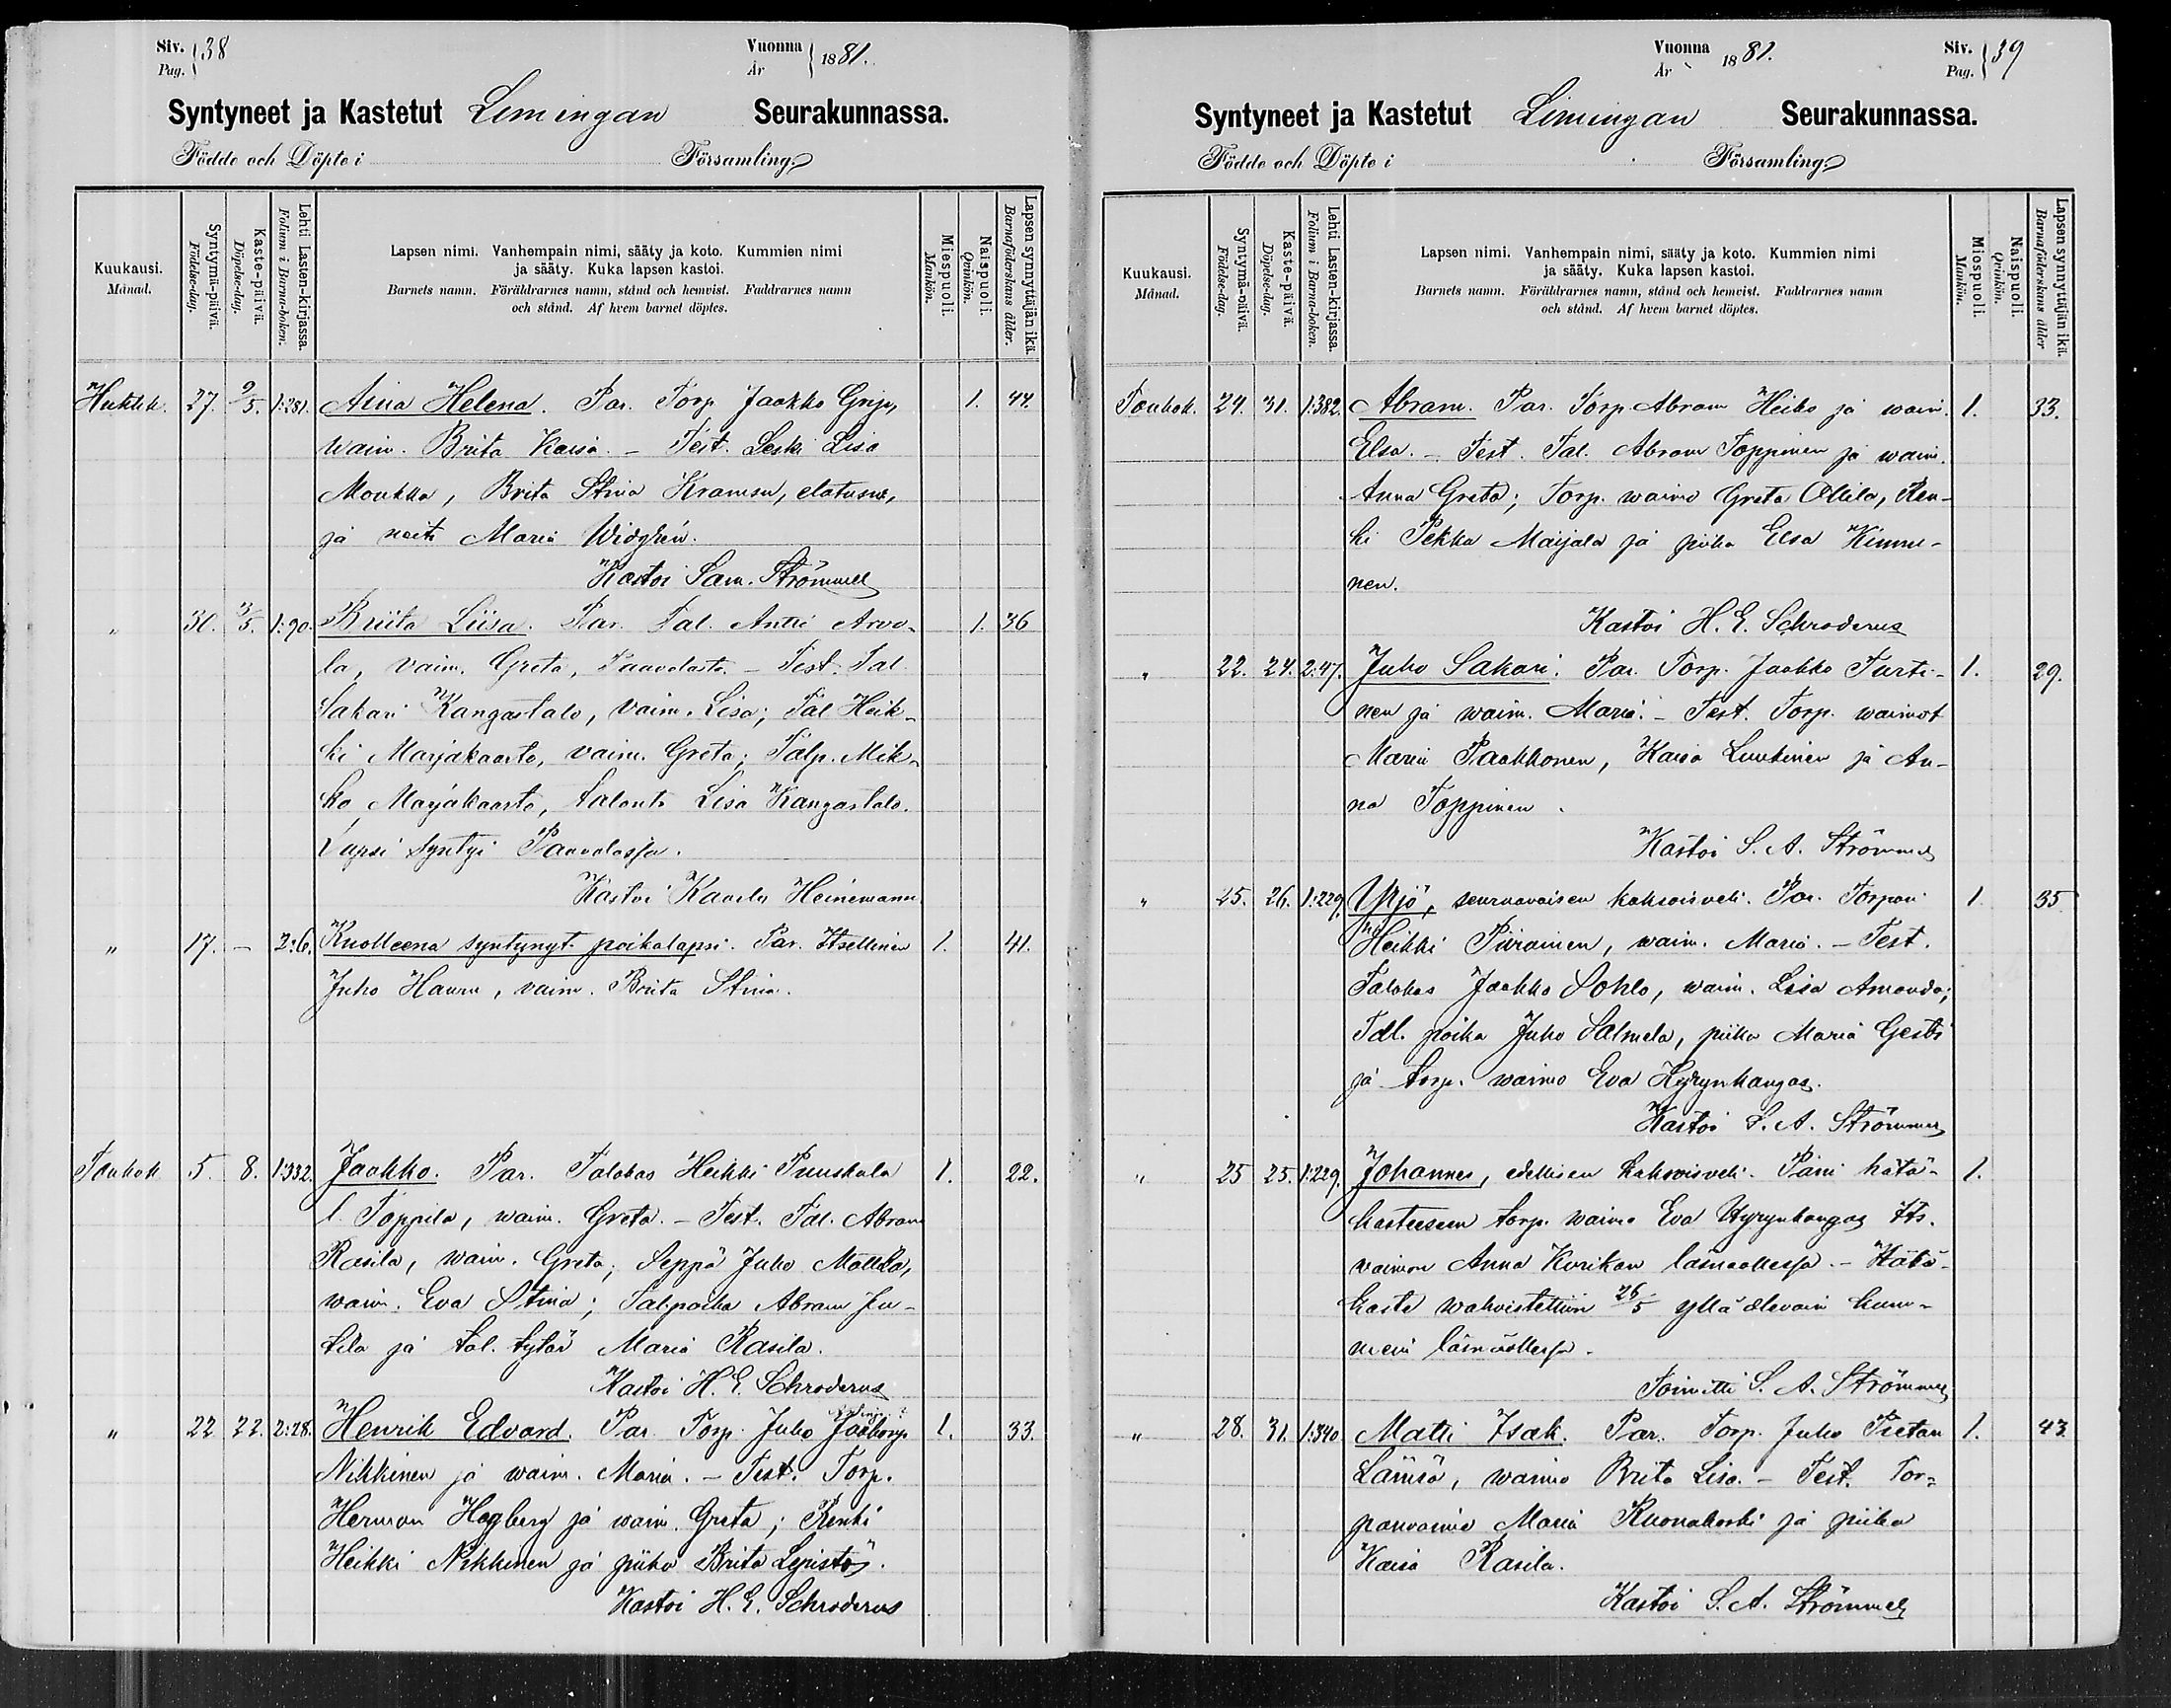 Siv. 38
Pag.
Vuonna 1881.
År
Syntyneet ja Kastetut Limingan Seurakunnassa.
Födde och Döpte i Församling.
Kuukausi.
Månad.
Syntymä-päivä.
Födelse-dag.
Kaste-päivä.
Döpelse-dag.
Lehti Lasten-kirjassa.
Folium i Barna-boken.
Lapsen nimi. Vanhempain nimi, sääty ja koto. Kummien nimi
ja sääty. Kuka lapsen kastoi.
Barnets namn. Föräldrarnes namn, stånd och hemvist. Faddrarnes namn
och stånd. Af hvem barnet döptes.
Miespuoli.
Mankön.
Naispuoli.
Qvinkön.
Lapsen synnyttäjän ikä.
Barnaföderskans ålder.
Huhtik. 27. 9/5. 1:281. Aina Helena. Par. Torp. Jaakko Grip, 1. 44.
waim. Brita Kaisa. – Test. Leski Lisa
Moukka, Brita Stina Kramsu, elatusm,
ja neits Maria Widgrén.
Kastoi Sam. Strömmer
" 30. 3/5. 1:90. Briita Liisa. Par. Tal. Antti Arvo- 1. 36
la, vaim. Greta, Paavolasta. – Test. Tal.
Sakari Kangastalo, vaim. Lisa; Tal Heik-
ki Marjakaarto, vaim. Greta; Talp. Mik-
ko Marjakaarto, talont. Lisa Kangastalo.
Lapsi syntyi Paavolassa.
Kastoi Kaarlo Heinemann.
" 17. – 2:6. Kuolleena syntynyt poikalapsi. Par. Itsellinen 1. 41.
Juho Hauru, vaim. Brita Stina.
Toukok 5. 8. 1:332. Jaakko. Par. Talokas Heikki Puuskala 1. 22.
l. Toppila, waim. Greta. – Test. Tal. Abram
Rasila, waim. Greta; Seppä Juho Mattila,
waim. Eva Stina; Tal.poika Abram Ju-
tila ja tal. tytär Maria Rasila.
Kastoi H. E. Schroderus
" 22 22. 2:28. Henrik Edvard. Par. Torp. Juho Jaakonp. 1. 33.
Nikkinen ja waim. Maria. – Test. Torp.
Herman Hagberg ja waim. Greta; Renki
Heikki Nikkinen ja piika Brita Lepistö.
Kastoi H. E. Schroderus
Vuonna 1881.
År
Siv. 39
Pag.
Syntyneet ja Kastetut Limingan Seurakunnassa.
Födde och Döpte i Församling.
Kuukausi.
Månad.
Syntymä-päivä.
Födelse-dag.
Kaste-päivä.
Döpelse-dag.
Lehti Lasten-kirjassa.
Folium i Barna-boken.
Lapsen nimi. Vanhempain nimi, sääty ja koto. Kummien nimi
ja sääty. Kuka lapsen kastoi.
Barnets namn. Föräldrarnes namn, stånd och hemvist. Faddrarnes namn
och stånd. Af hvem barnet döptes.
Miespuoli.
Mankön.
Naispuoli.
Qvinkön.
Lapsen synnyttäjän ikä.
Barnaföderskans ålder
Toukok. 24. 31. 1:382. Abram. Par. Torp. Abram Heiko ja waim. 1. 33.
Elsa. – Test. Tal. Abram Toppinen ja waim.
Anna Greta; Torp. waimo Greta Ollila, Ren-
ki Pekka Maijala ja piika Elsa Kinnu-
nen.
Kastoi H. E. Schroderus
" 22. 24. 2:47. Juho Sakari. Par. Torp. Jaakko Turti- 1. 29.
nen ja waim. Maria. – Test. Torp. waimot
Maria Paakkonen, Kaisa Luukinen ja An-
na Toppinen.
Kastoi S. A. Strömmer
" 25. 26. 1:229. Yrjö, seuraavaisen kaksoisveli. Par. Torpari 1 35
Heikki Piirainen, waim. Maria. – Test.
Talokas Jaakko Sohlo, waim. Lisa Amanda;
Tal. poika Juho Salmela, piika Maria Gesti
ja torp. waimo Eva Hyrynkangas.
Kastoi S. A. Strömmer
" 25 25. 1:229. Johannes, edellisen kaksoisveli. Pani hätä- 1.
kasteeseen torp. waimo Eva Hyrynkangas Its.
waimon Anna Kurikan läsnäollessa. – Hätä-
kaste wahvistettiin 26/5 yllä olevain kum-
mein läsnäollessa.
Toimitti S. A. Strömmer
" 28. 31. 1:340 Matti Isak. Par. Torp. Juho Pietan 1. 43
Lämsä, waimo Brita Lisa. – Test. Tor-
panvaimo Maria Ruonakoski ja piika
Kaisa Rasila.
Kastoi S. A. Strömmer